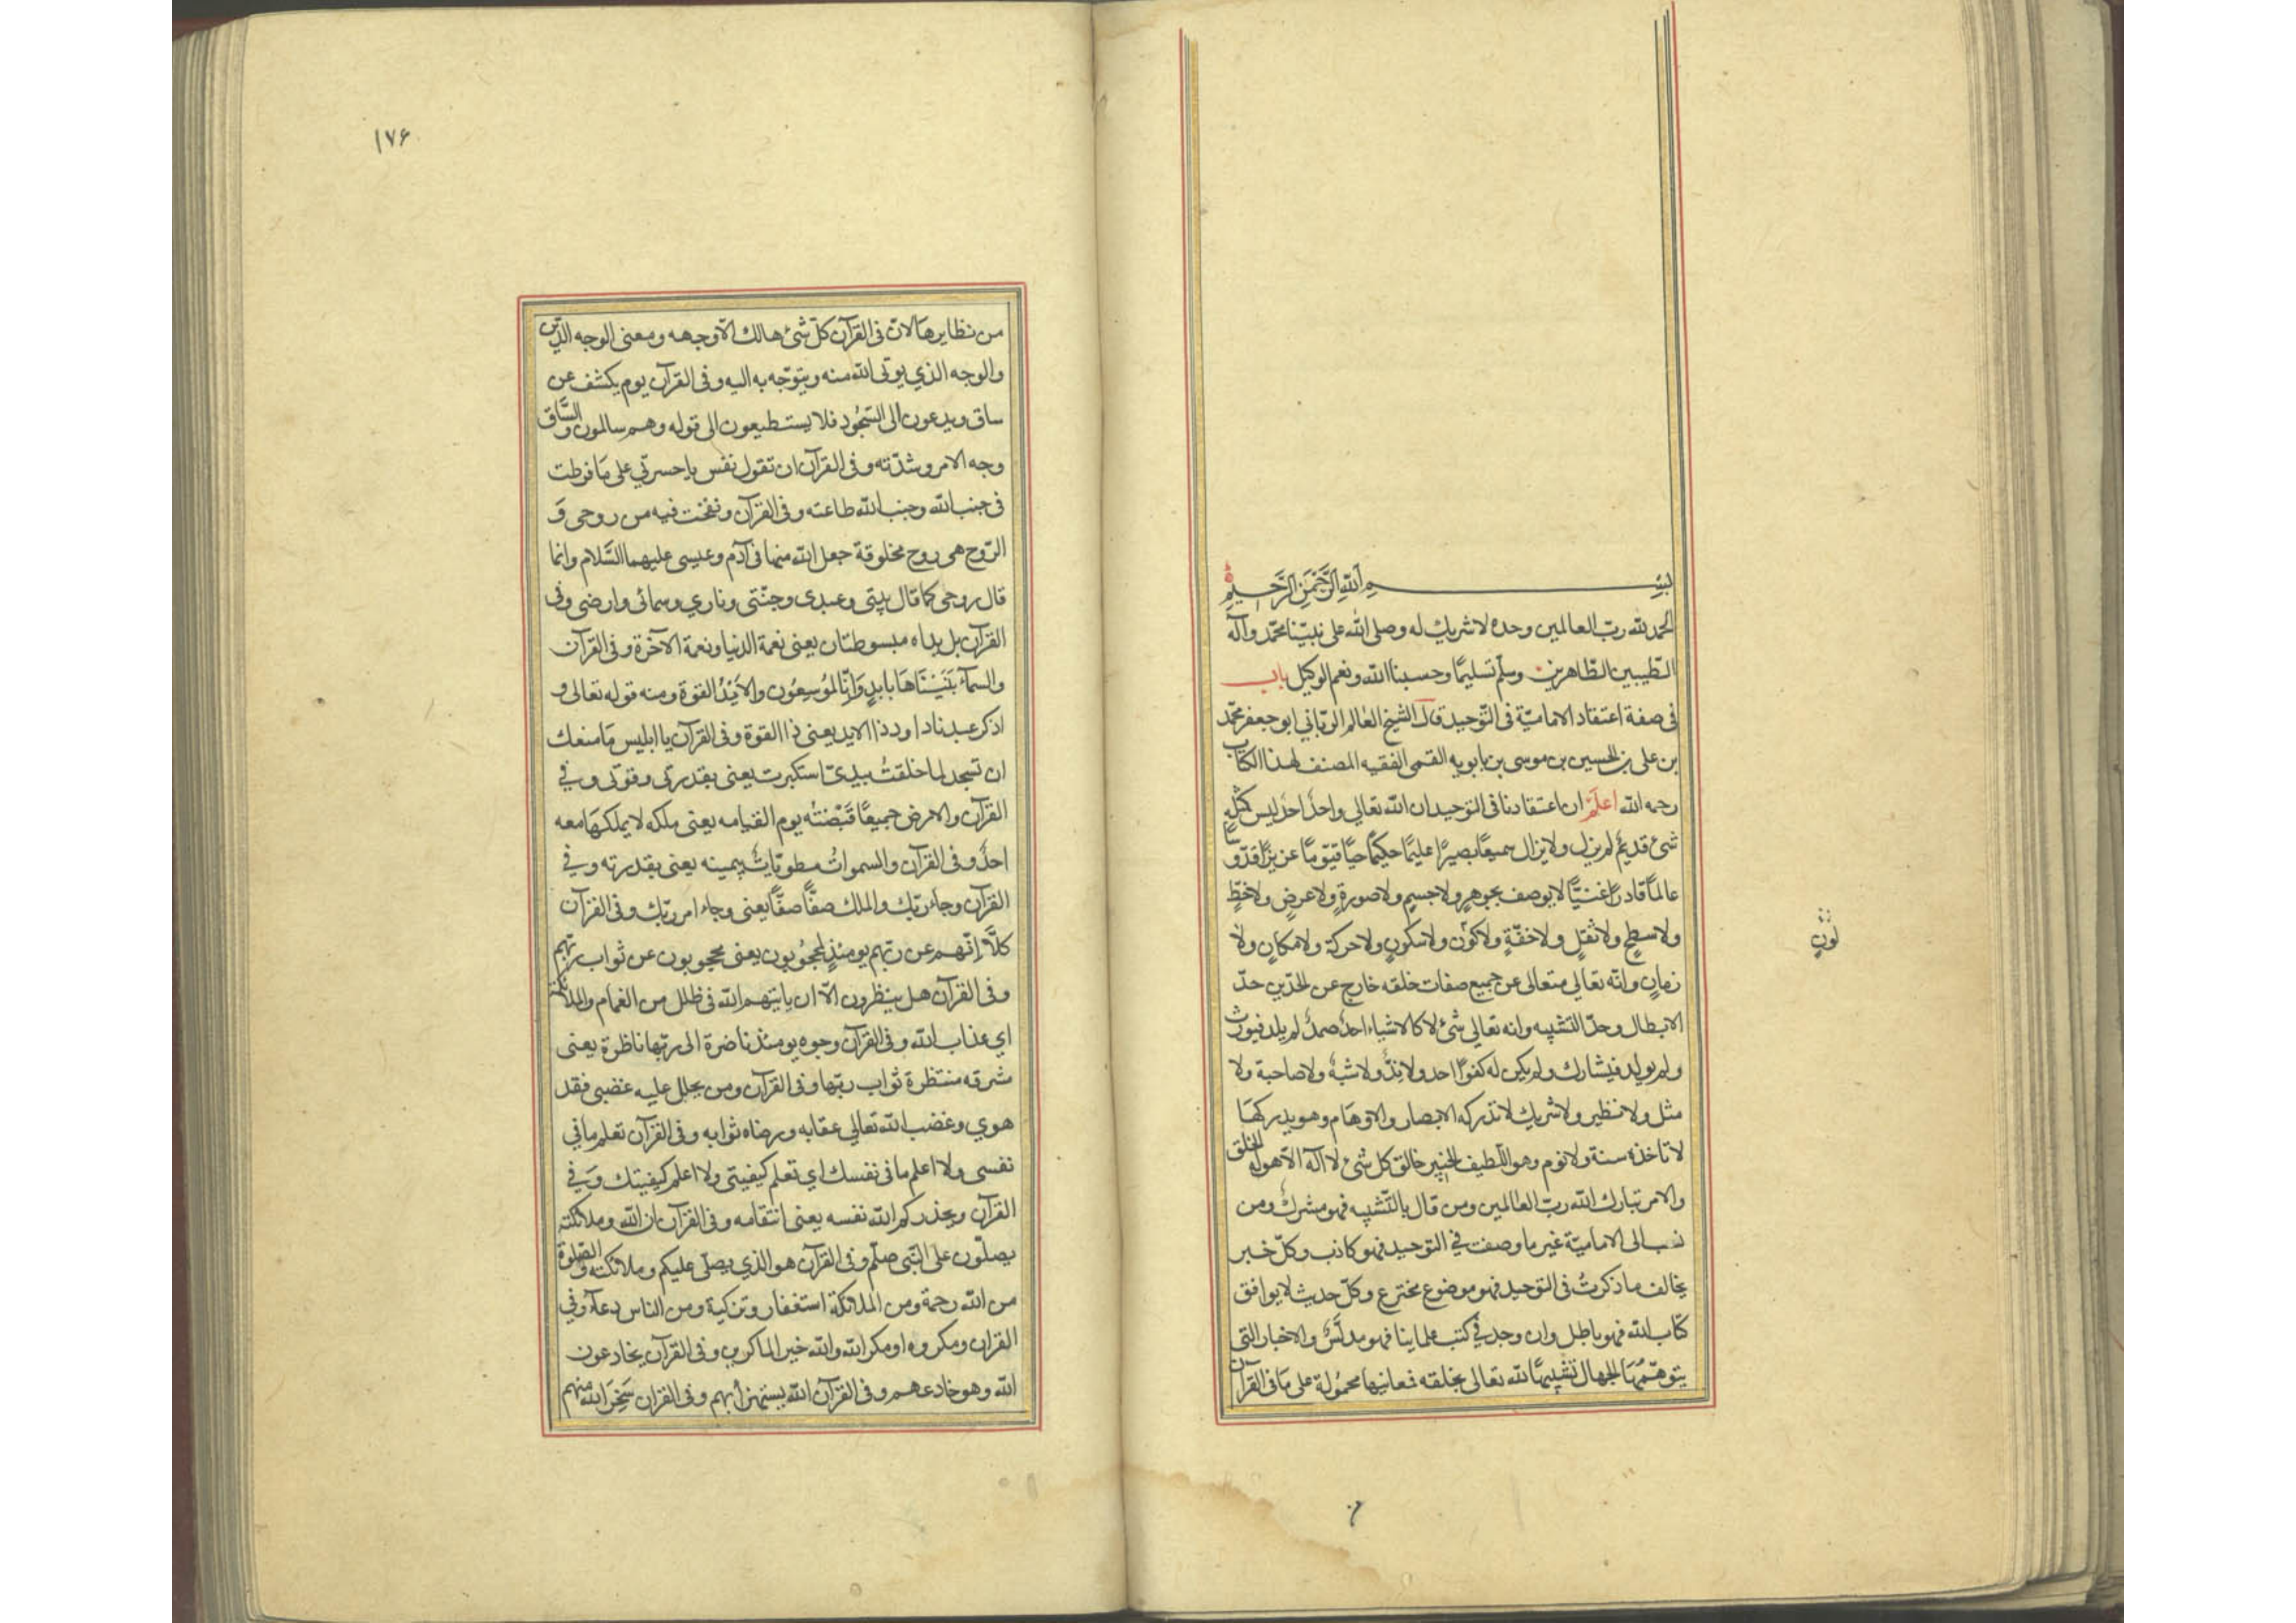 بسم الله الرحمن الرحيم
الحمد لله ربّ العالمين وحده لا شريك له وصلى الله على نبيّنا محمّد وآله
الطّيبين الطّاهرين وسلّم تسليمًا وحسبنا الله ونعم الوكيل باب
فى صفة اعتقاد الاماميّة فى التّوحيد قال الشيخ العالم الربّاني ابو جعفر محمّد
بن على بن الحسين بن موسى بن بابويه القمى الفقيه المصنف لهذا الكتاب
رحمه الله اعلم ان اعتقادنا فى التوحيد ان الله تعالي واحدٌ احدٌ ليس كمثله
شئ قديمٌ لم يزل ولا يزال سميعًا بصيرًا عليمًا حكيمًا حيًّا قيّومًا عزيزًا قدّوسًا
عالمًا قادرًا غنيًّا لا يوصف بجوهرٍ ولا جسمٍ ولا صورةٍ ولا عرضٍ ولا خطٍّ
ولا سطحٍ ولا ثقلٍ ولا خفّةٍ ولا كونٍ ولا سكونٍ ولا حركة ولا مكانٍ ولا
لونٍ
زمانٍ وانّه تعالي متعالى عن جميع صفات خلقه خارج عن الحدّين حدّ
الابطال وحدّ التشبيه وانه تعالي شئ لا كالاشياء احدٌ صمدٌ لم يلد فيورث
ولم يولد فيشارك ولم يكن له كفوًا احد ولا ندٌّ ولا شبهٌ ولا صاحبة ولا
مثل ولا نظير ولا شريك لا تدركه الابصار والاوهام وهو يدركها
لا تاخذه سنة ولا نوم وهو اللّطيف الخبير خالق كل شئ لا اله الّا هو له الخلق
والامر تبارك الله ربّ العالمين ومن قال بالتّشبيه فهو مشرك ومن
نسب الى الاماميّة غير ما وصفت في التوحيد فهو كاذب وكلّ خبر
يخالف ما ذكرتُ فى التوحيد فهو موضوع مخترع وكلّ حديث لا يوافق
كتاب الله فهو باطل وان وجد في كتب علماينا فهو مدلّسٌ والاخبار التى
يتوهّمها الجهال تشبيهًا لله تعالى بخلقه فمعانيها محمولة على ما فى القرآن
١٧۶
من نظايرها لانّ فى القرآن كلّ شئ هالك الّا وجهه ومعنى الوجه الدّين
والوجه الذي يوتى الله منه ويتوّجه به اليه وفى القرآن يوم يكشف عن
ساق ويدعون الى السّجُود فلا يستطيعون الى قوله وهم سالمون والسّاق
وجه الامر وشدّته وفى القرآن ان تقول نفس ياحسرتي على مَا فرطت
فى جنب الله وجنب الله طاعته وفى القرآن ونفخت فيه من روحى وَ
الرّوح هى روح مخلوقة جعل الله منها فى آدم وعيسى عليهما السّلام وانما
قال روحى كما قال بيتى وعبدى وجنّتى وناري وسمائى وارضى وفى
القرآن بل يداه مبسوطتان يعنى نعمة الدنيا ونعمة الآخرة وفى القرآن
والسمآءَ بَنَيْنَاهَا بايدٍ وَانّا لمُوسِعُون والاَيْدُ القوة ومنه قوله تعالى و
اذكر عبدنا داود ذا الايد يعنى ذا القوة وفى القرآن يا ابليس مَا منعك
ان تسجد لما خلقتُ بيديّ استكبرت يعنى بقدرتى وقوتى وفي
القرآن والارض جميعًا قَبْضَتُه يوم القيامه يعنى ملكه لا يملكهَا معه
احدٌ وفى القرآن والسموات مطويّاتٌ بيمينه يعنى بقدرته وفي
القرآن وجاء ربّك والملك صفًّا صفًّا يعنى وجاء امر ربّك وفى القرآن
كلَّا إنّهم عن ربّهم يومئذٍ لمحجُوبون يعنى محجوبون عن ثواب ربّهم
وفى القرآن هل ينظرون الّا ان ياتيهم الله فى ظلل من الغمام والملائكة
اي عذاب الله وفى القرآن وجوه يومئذ ناضرة الى ربّها ناظرة يعنى
مشرقه منتظرة ثواب ربّها وفى القرآن ومن يحلل عليه غضبى فقد
هوي وغضب الله تعالي عقابه ورضاه ثوابه وفى القرآن تعلم ما في
نفسى ولا اعلم ما فى نفسك اي تعلم كيفيتى ولا اعلم كيفيتك وَفي
القرآن ويحذركم الله نفسه يعنى انتقامه وفى القرآن ان الله وملائكته
يصلّون على النّبى صلّم وفى القرآن هو الذي يصلّى عليكم وملائكته والصّلوة
من الله رحمة ومن الملائكة استغفار وتزكية ومن الناس دعآء وفي
القران ومكروا ومكر الله والله خير الماكرين وفى القرآن يخادعون
الله وهو خادعهم وفى القرآن الله يستهزأ بهم وفى القران سَخِرَ الله منهم